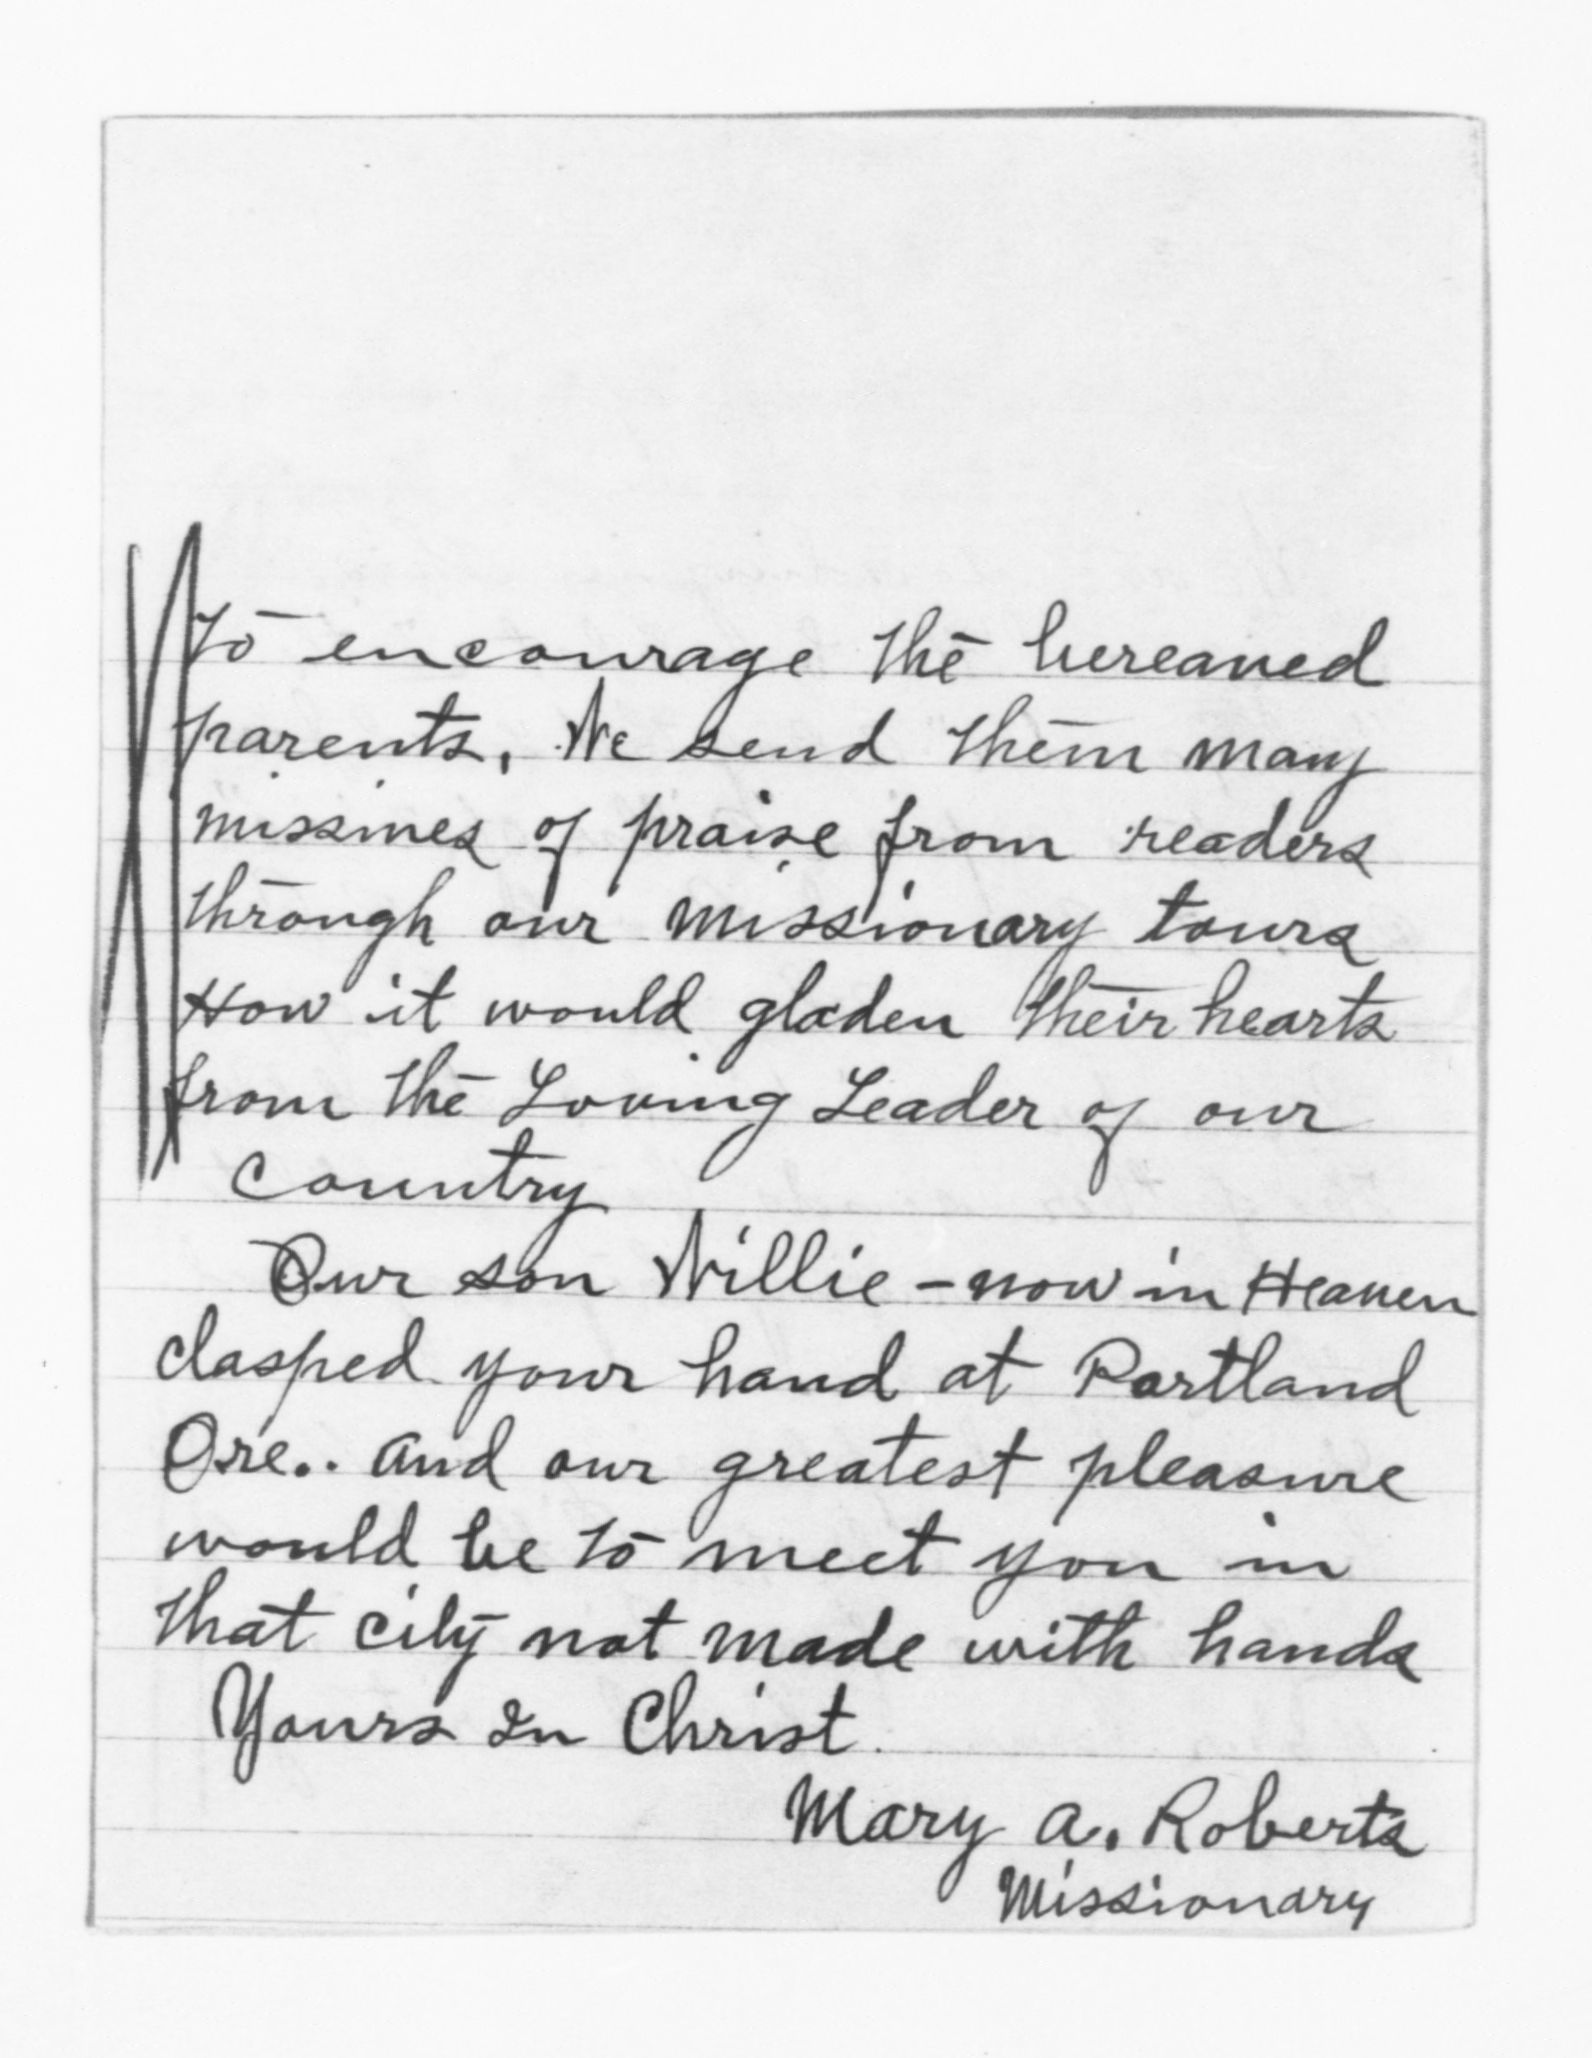 to encourage the bereaved
parents, We send them many
missives of praise from readers
through our missionary tours
How it would gladen their hearts
from the Loving Leader of our
country
Our son Willie - now in Heaven
clasped your hand at Portland
Ore.. and our greatest pleasure
would be to meet you in
that city not made with hands
Yours In Christ.
Mary A. Roberts
Missionary